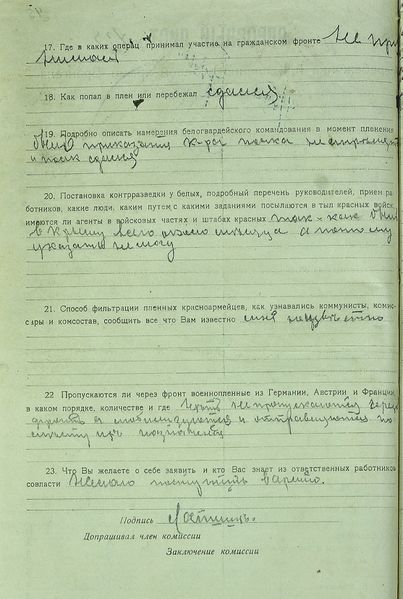 17. Где в каких операц принимал участие на гражданском фронте Не при
нимал
18. Как попал в плен или перебежал сдался
19. Подробно описать намерения белогвардейского командования в момент пленения
было приказание к-ра полка не стрелять
и полк сдался
20. Постановка контрразведки у белых, подробный перечень руководителей, прием ра
ботников, какие люди, каким путем с какими заданиями посылаются в тыл красных войск,
имеются ли агенты в войсковых частях и штабах красных так-как был
в Крыму всего около месяца а потому
указать не могу
21. Способ фильтрации пленных красноармейцев, как узнавались коммунисты, комис-
сары и комсостав, сообщить все что Вам известно мне неизвестно
22 Пропускаются ли через фронт военнопленные из Германии, Австрии и Франции,
в каком порядке, количестве и где не пропускаются через
фронт а мобилизуются и отправляются по
23. Что Вы желаете о себе заявить и кто Вас знает из ответственных работников
совласти Желаю
Подпись
Допрашивал член комиссии
Заключение комиссии